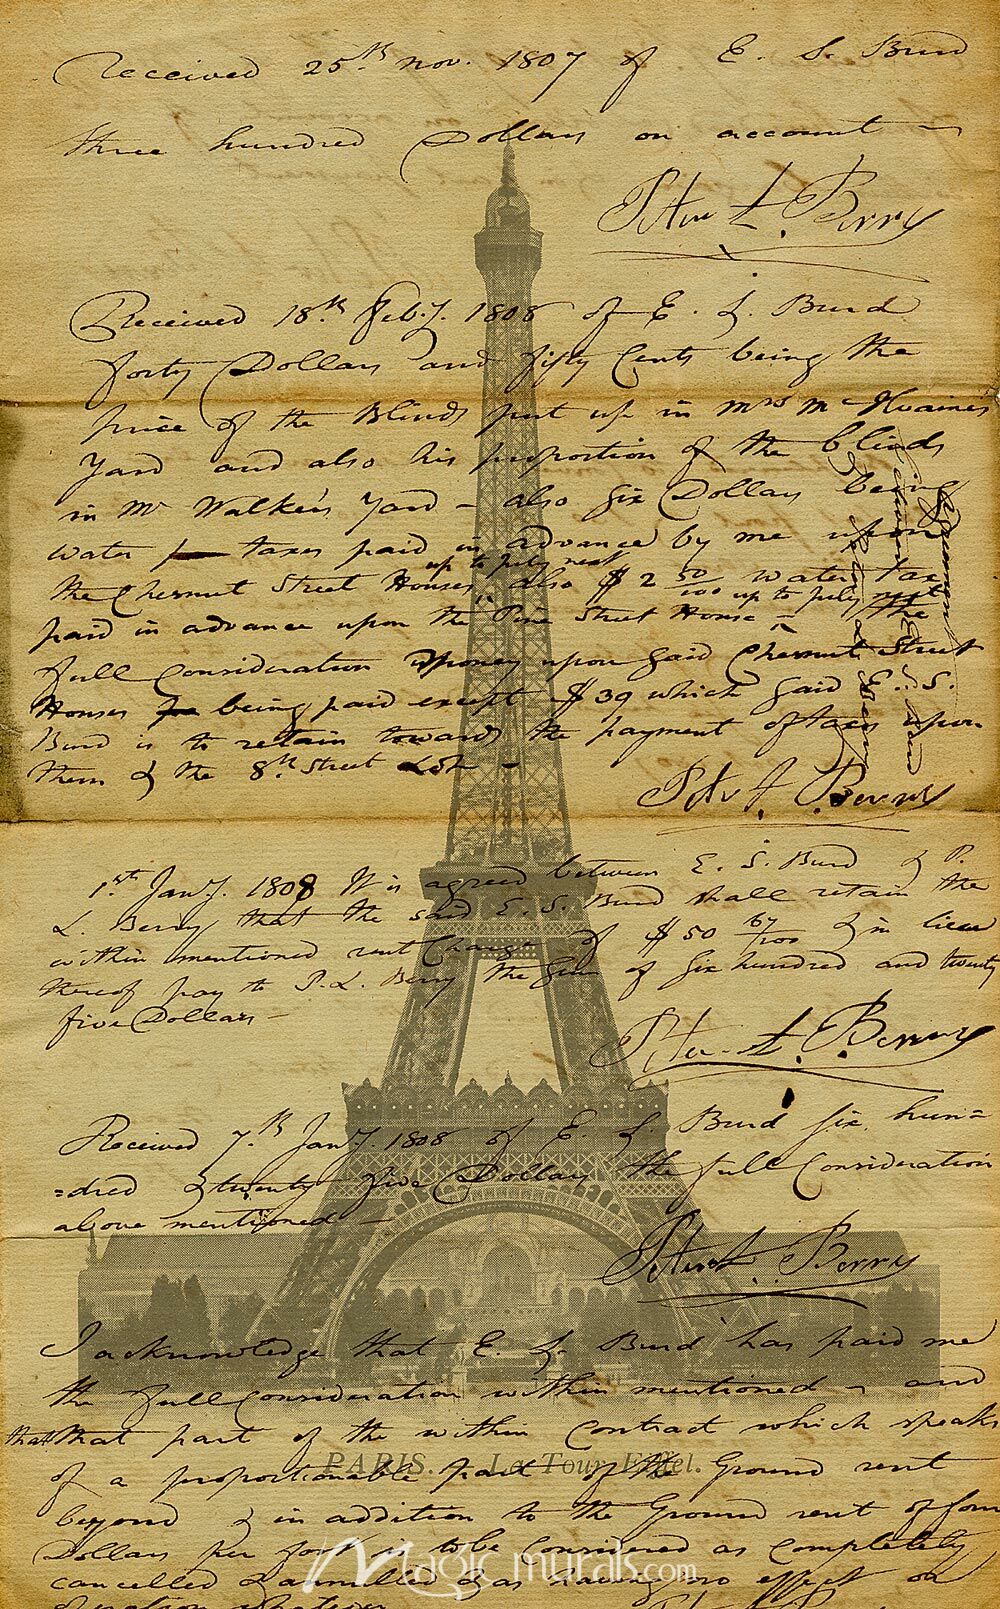 Received 25th Nov. 1807 of E. S. Burd
three hundred Dollars on account
Peter L. Berry
Received 18th Feby. 1808 of E. S. Burd
forty Dollars and fifty Cents being the
price of the Blinds put up in Mrs Mc
Yard and also his proportion of the blinds
in Mr Walkers Yard - also six Dollars being
water taxes paid in advance by me upon
up to July next
the Chesnut Street Houses, also $2 50/100 water tax
up to July next
paid in advance upon the Pine Street House - the
full Consideration Money upon said Chesnut Street
Houses being paid except $39 which said E. S.
Burd is to retain towards the payment of taxes upon
them & the 8th Street Lot -
Peter L. Berry
Agreement
E. S. Burd
Peter L. Berry
1st Jany. 1808 It is agreed between E. S. Burd & P.
L. Berry that the said E. S. Burd shall retain the
within mentioned rent Charge of $50 67/100 & in lieu
thereof pay to P. L. Berry the sum of six hundred and twenty
five Dollars -
Peter L. Berry
Received 7th Jany. 1808 of E. S. Burd six hun=
=dred & twenty five Dollars the full Consideration
above mentioned -
Peter L. Berry
I acknowledge that E. S. Burd has paid me
the full Consideration within mentioned - and
that that part of the within Contract which speaks
PARIS. - La Tour Eiffel.
of a proportionable part of the Ground rent
beyond & in addition to the Ground rent of four
Dollars per foot is to be Considered as completely
cancelled & annulled & as having no effect or
operation whatever
Magicmurals.com